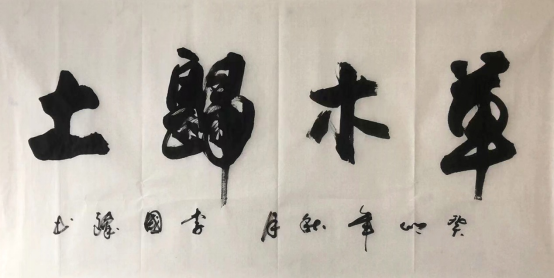 草木歸土
癸卯年秋月李國书